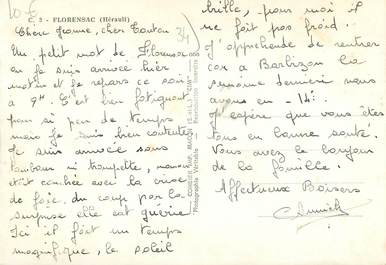 10 €
C. 2 - FLORENSAC (Hérault)
34
Chère Jeanne, cher Tonton
Un petit mot de Florensac
où je suis arrivée hier
matin et je repars ce soir
à 9H. C'est bien fatigant
pour si peu de temps
mais je suis bien contente
Je suis arrivée sans
tambour ni trompette, maman
était couchée avec la crise
de foie, du coup par la
surprise elle est guérie
Ici il fait un temps
magnifique, le soleil
brille, pour moi il
ne fait pas froid.
J'appréhende de rentrer
car à Barbizon la
semaine dernière nous
avons eu - 14°.
J'espère que vous êtes
tous en bonne santé.
Vous avez le bonjour
de la famille.
Affectueux Baisers